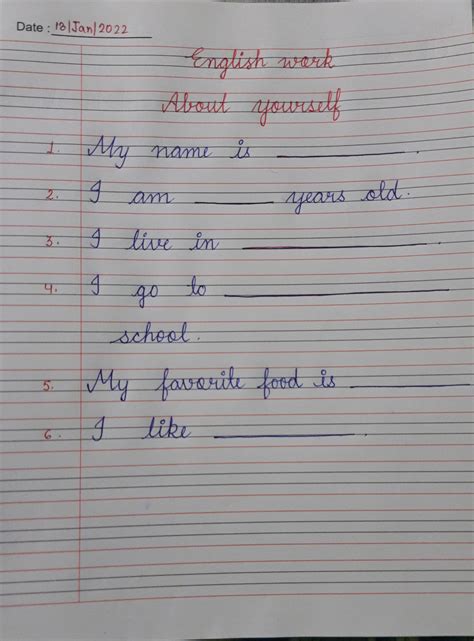 Date : 13/Jan/2022
English work
About yourself
1. My name is ____________.
2. I am ________ years old.
3. I live in ____________.
4. I go to ____________
school.
5. My favorite food is ________
6. I like ____________.